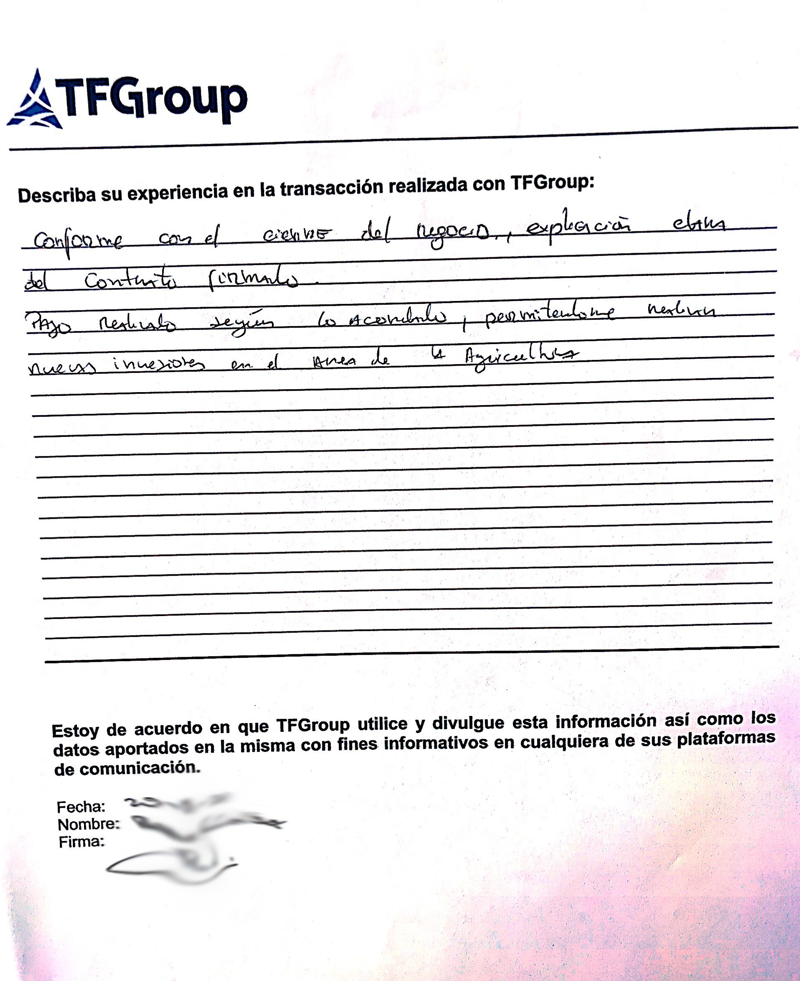 TFGroup
Describa su experiencia en la transacción realizada con TFGroup:
Conforme con el cierre del negocio, explicación clara
del Contrato firmado.
Pago realizado según lo acordado, permitiendome realizar
nuevas inversiones en el area de la Agricultura
Estoy de acuerdo en que TFGroup utilice y divulgue esta información así como los
datos aportados en la misma con fines informativos en cualquiera de sus plataformas
de comunicación.
Fecha:
Nombre:
Firma: